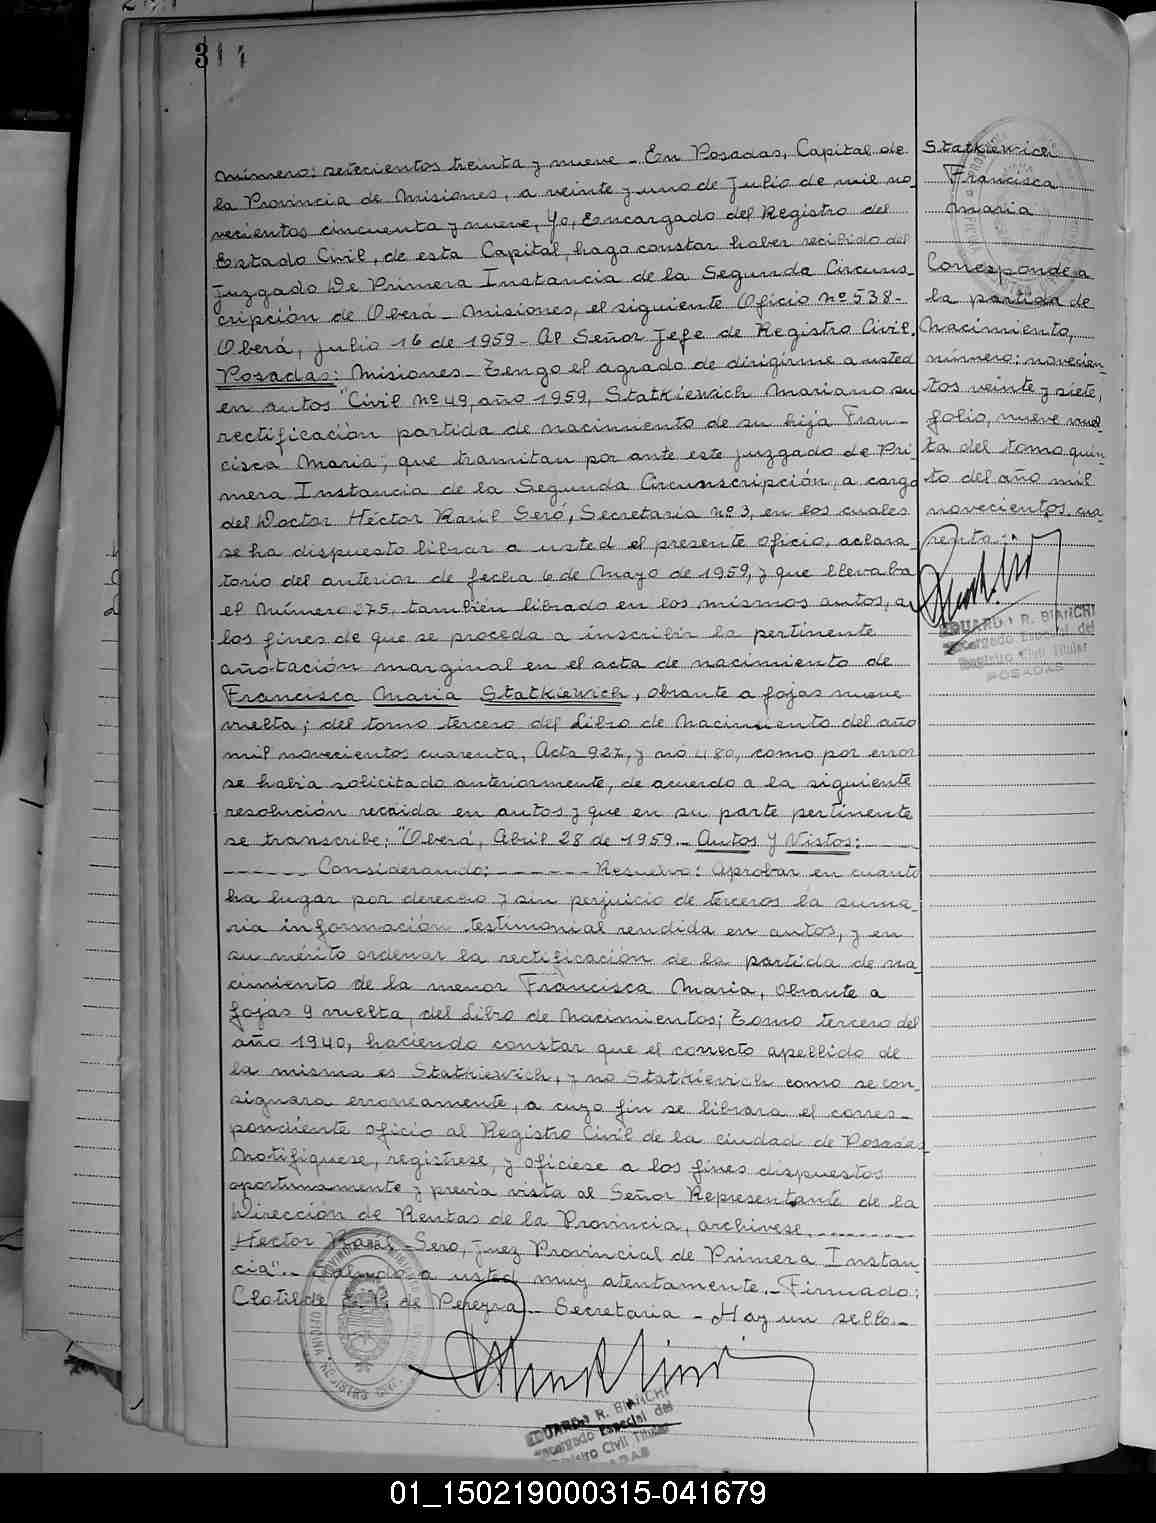 311
número: setecientos treinta y nueve - En Posadas, Capital de
la Provincia de Misiones, a veinte y uno de Julio de mil no-
vecientos cincuenta y nueve, Yo, Encargado del Registro del
Estado Civil, de esta Capital, hago constar haber recibido del
Juzgado De Primera Instancia de la Segunda Circuns-
cripción de Oberá - Misiones, el siguiente Oficio Nº 538-
Oberá, Julio 16 de 1959 - Al Señor Jefe de Registro Civil.
Posadas: Misiones - Tengo el agrado de dirigirme a usted
en autos "Civil Nº 49, año 1959, Statkiewich Mariano su
rectificación partida de nacimiento de su hija Fran-
cisca Maria", que tramitan por ante este juzgado de Pri-
mera Instancia de la Segunda Circunscripción, a cargo
del Doctor Héctor Raúl Seró, Secretaria nº 3, en los cuales
se ha dispuesto librar a usted el presente oficio, aclara-
torio del anterior de fecha 6 de Mayo de 1959, y que llevaba
el Número 275, también librado en los mismos autos, a
los fines de que se proceda a inscribir la pertinente
añotación marginal en el acta de nacimiento de
Francisca Maria Statkiewich, obrante a fojas nueve
vuelta; del tomo tercero del Libro de Nacimiento del año
mil novecientos cuarenta, Acta 927, y no 480, como por error
se habia solicitado anteriormente, de acuerdo a la siguiente
resolución recaida en autos y que en su parte pertinente
se transcribe: "Oberá, Abril 28 de 1959.- Autos y Vistos: ----
------ Considerando: ------ Resuelvo: Aprobar en cuanto
ha lugar por derecho y sin perjuicio de terceros la suma-
ria información testimonial rendida en autos, y en
su mérito ordenar la rectificación de la partida de na-
cimiento de la menor Francisca Maria, obrante a
fojas 9 vuelta, del Libro de Nacimientos; Tomo tercero del
año 1940, haciendo constar que el correcto apellido de
la misma es Statkiewich, y no Statkievich como se con-
signara erroneamente, a cuyo fin se librara el corres-
pondiente oficio al Registro Civil de la ciudad de Posadas
Notifiquese, registrese, y oficiese a los fines dispuestos
oportunamente y previa vista al Señor Representante de la
Dirección de Rentas de la Provincia, archivese, --------
Héctor Raúl Sero, juez Provincial de Primera Instan-
cia".- Saludo a usted muy atentamente.- Firmado:
Clotilde de Pereyra - Secretaria - Hay un sello.-
EDUARDO R. BIANCHI
Encargado Especial del
Registro Civil Titular
POSADAS
Statkiewich
Francisca
Maria
Corresponde a
la partida de
Nacimiento,
número: novecien-
tos veinte y siete,
folio, nueve vuel-
ta del tomo quin-
to del año mil
novecientos cua-
renta.-
EDUARDO R. BIANCHI
Encargado Especial del
Registro Civil Titular
POSADAS
01_150219000315-041679